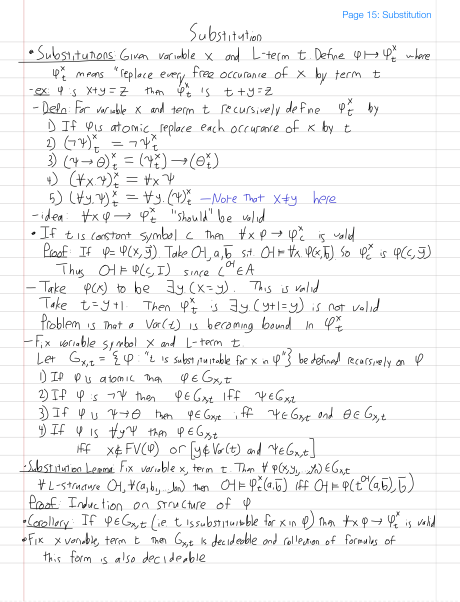 Page 15: Substitution
Substitution
• Substitutions: Given variable x and L-term t. Define φ ↦ φ^x_t where
φ^x_t means "replace every free occurance of x by term t
-ex: φ is x+y=z then φ^x_t is t+y=z
- Defn: For variable x and term t recursively define φ^x_t by
1) If φ is atomic replace each occurance of x by t
2) (¬ψ)^x_t = ¬ψ^x_t
3) (ψ→θ)^x_t = (ψ^x_t)→(θ^x_t)
4) (∀x.ψ)^x_t = ∀xψ
5) (∀y.ψ)^x_t = ∀y.(ψ)^x_t – Note that x≠y here
- idea: ∀xφ → φ^x_t "should" be valid
• If t is constant symbol c then ∀xφ → φ^x_c is valid
Proof: If φ=φ(x,ȳ). Take 𝔄, a, b̄ s.t. 𝔄⊨∀xφ(x,b̄) So φ^x_c is φ(c,ȳ)
Thus 𝔄⊨φ(c, ) since c^𝔄∈A
- Take φ(x) to be ∃y.(x=y). This is valid
Take t=y+1. Then φ^x_t is ∃y.(y+1=y) is not valid
Problem is that a Var(t) is becoming bound in φ^x_t
- Fix variable symbol x and L-term t.
Let G_{x,t} = {φ: "t is substituitable for x in φ"} be defined recursively on φ
1) If φ is atomic then φ∈G_{x,t}
2) If φ is ¬ψ then φ∈G_{x,t} iff ψ∈G_{x,t}
3) If φ is ψ→θ then φ∈G_{x,t} iff ψ∈G_{x,t} and θ∈G_{x,t}
4) If φ is ∀yψ then φ∈G_{x,t}
iff x∉FV(φ) or [y∉Var(t) and ψ∈G_{x,t}]
- Substitution Lemma: Fix variable x, term t. Then ∀φ(x,y₁,...,yₙ)∈G_{x,t}
∀L-structure 𝔄, ∀(a,b₁,...,bₙ) then 𝔄⊨φ^x_t(a,b̄) iff 𝔄⊨φ(t^𝔄(a,b̄),b̄)
Proof: Induction on structure of φ
• Corollary: If φ∈G_{x,t} (ie t is substituitable for x in φ) then ∀xφ → φ^x_t is valid
• Fix x variable, term t then G_{x,t} is decideable and collection of formulas of
this form is also decideable